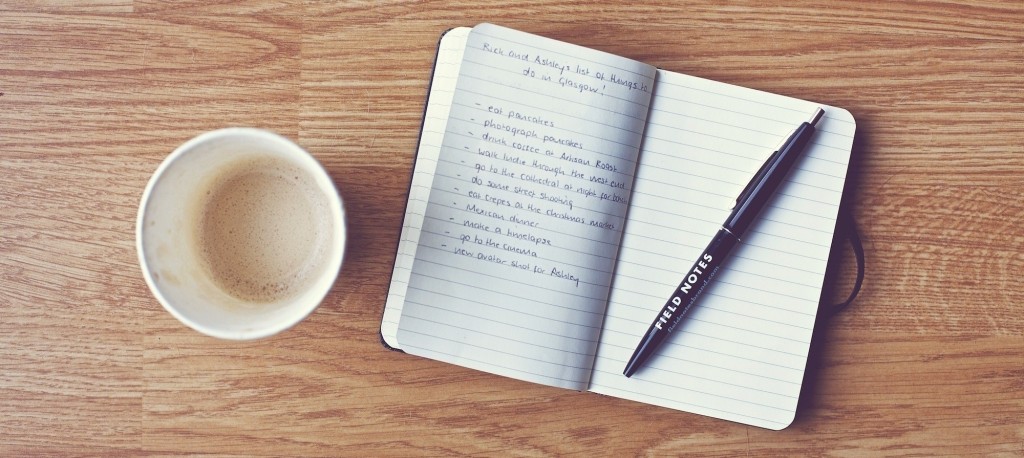 Rick and Ashleys list of things to
do in Glasgow!
- eat pancakes
- photograph pancakes
- drink coffee at Artisan Roast
- walk Indie through the west end
- go to the cathedral at night for
- do some street shooting
- eat crepes at the christmas market
- Mexican dinner
- make a timelapse
- go to the cinema
- new avatar shot for Ashley
FIELD NOTES